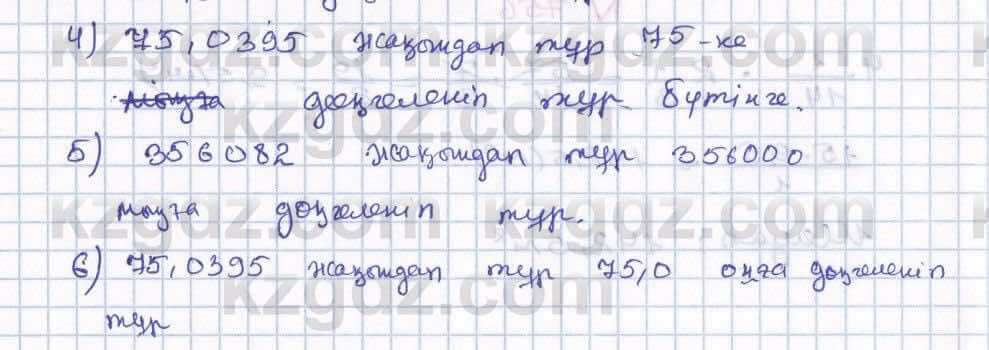 4) 75,0395 жақындап тұр 75-ке
мыңға дөңгеленіп тұр бүтінге.
5) 356082 жақындап тұр 356000
мыңға дөңгеленіп тұр.
6) 75,0395 жақындап тұр 75,0 онға дөңгеленіп
тұр
kzgdz.com kzgdz.com